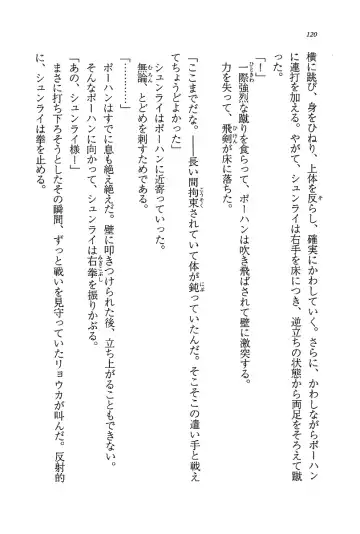 120
横に跳び、身をひねり、上体を反らし、確実にかわしていく。さらに、かわしながらポーハン
に連打を加える。やがて、シュンライは右手を床につき、逆立ちの状態から両足をそろえて蹴
「！」
一際強烈な蹴りを食らって、ポーハンは吹き飛ばされて壁に激突する。
力を失って、飛剣が床に落ちた。
「ここまでだな。――長い間拘束されていて体が鈍っていたんだ。そこそこの遣い手と戦え
てちょうどよかった」
シュンライはポーハンに近寄っていった。
無論、とどめを刺すためである。
「…………」
ポーハンはすでに息も絶え絶えだ。壁に叩きつけられた後、立ち上がることもできない。
そんなポーハンに向かって、シュンライは右拳を振りかぶる。
「あの、シュンライ様！」
まさに打ち下ろそうとしたその瞬間、ずっと戦いを見守っていたリョウカが叫んだ。反射的
に、シュンライは拳を止める。